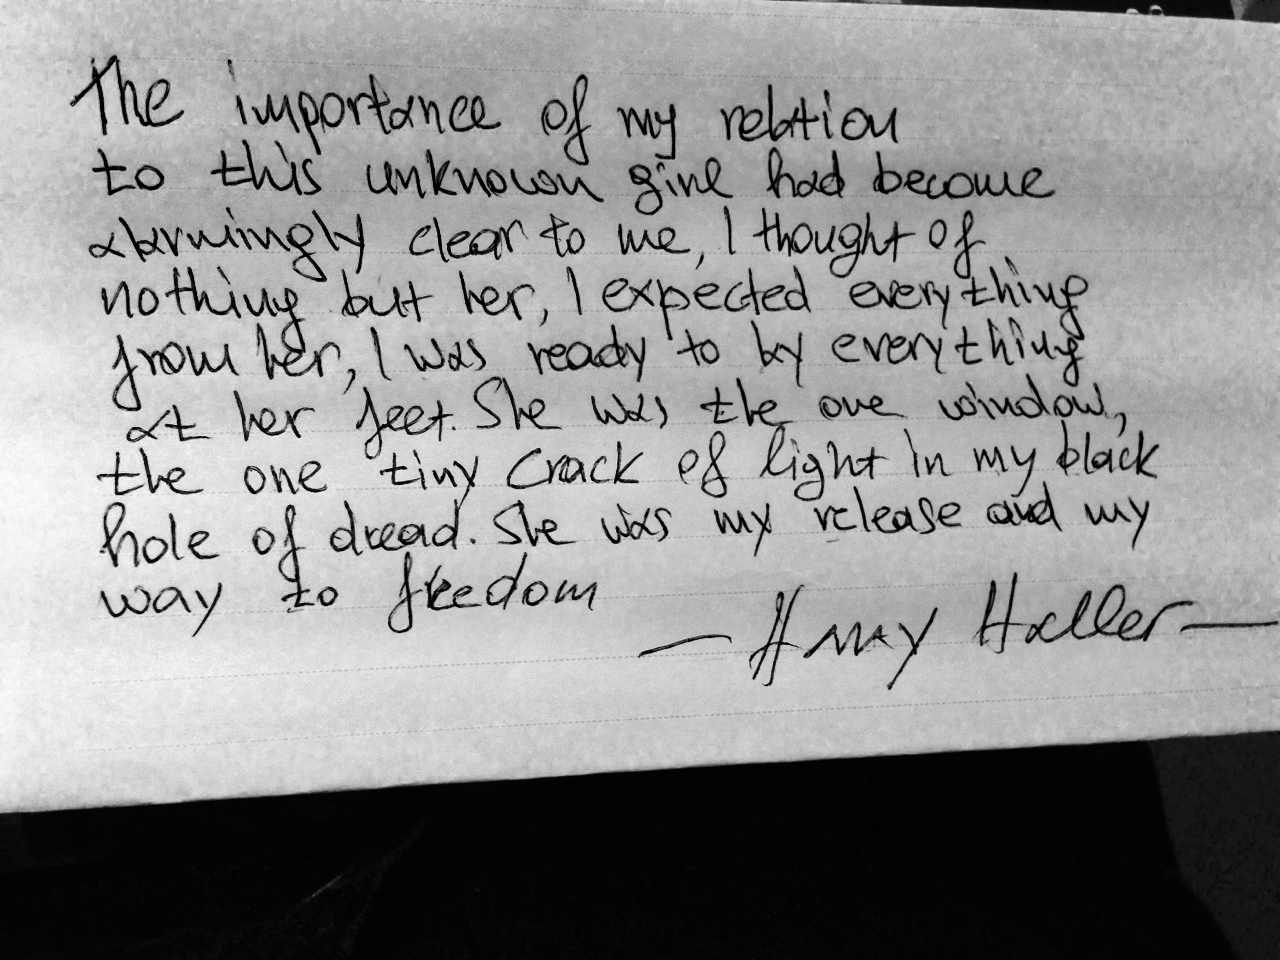 The importance of my relation
to this unknown girl had become
alarmingly clear to me, I thought of
nothing but her, I expected everything
from her, I was ready to lay everything
at her feet. She was the one window,
the one tiny crack of light in my black
hole of dread. She was my release and my
way to freedom
— Harry Haller —